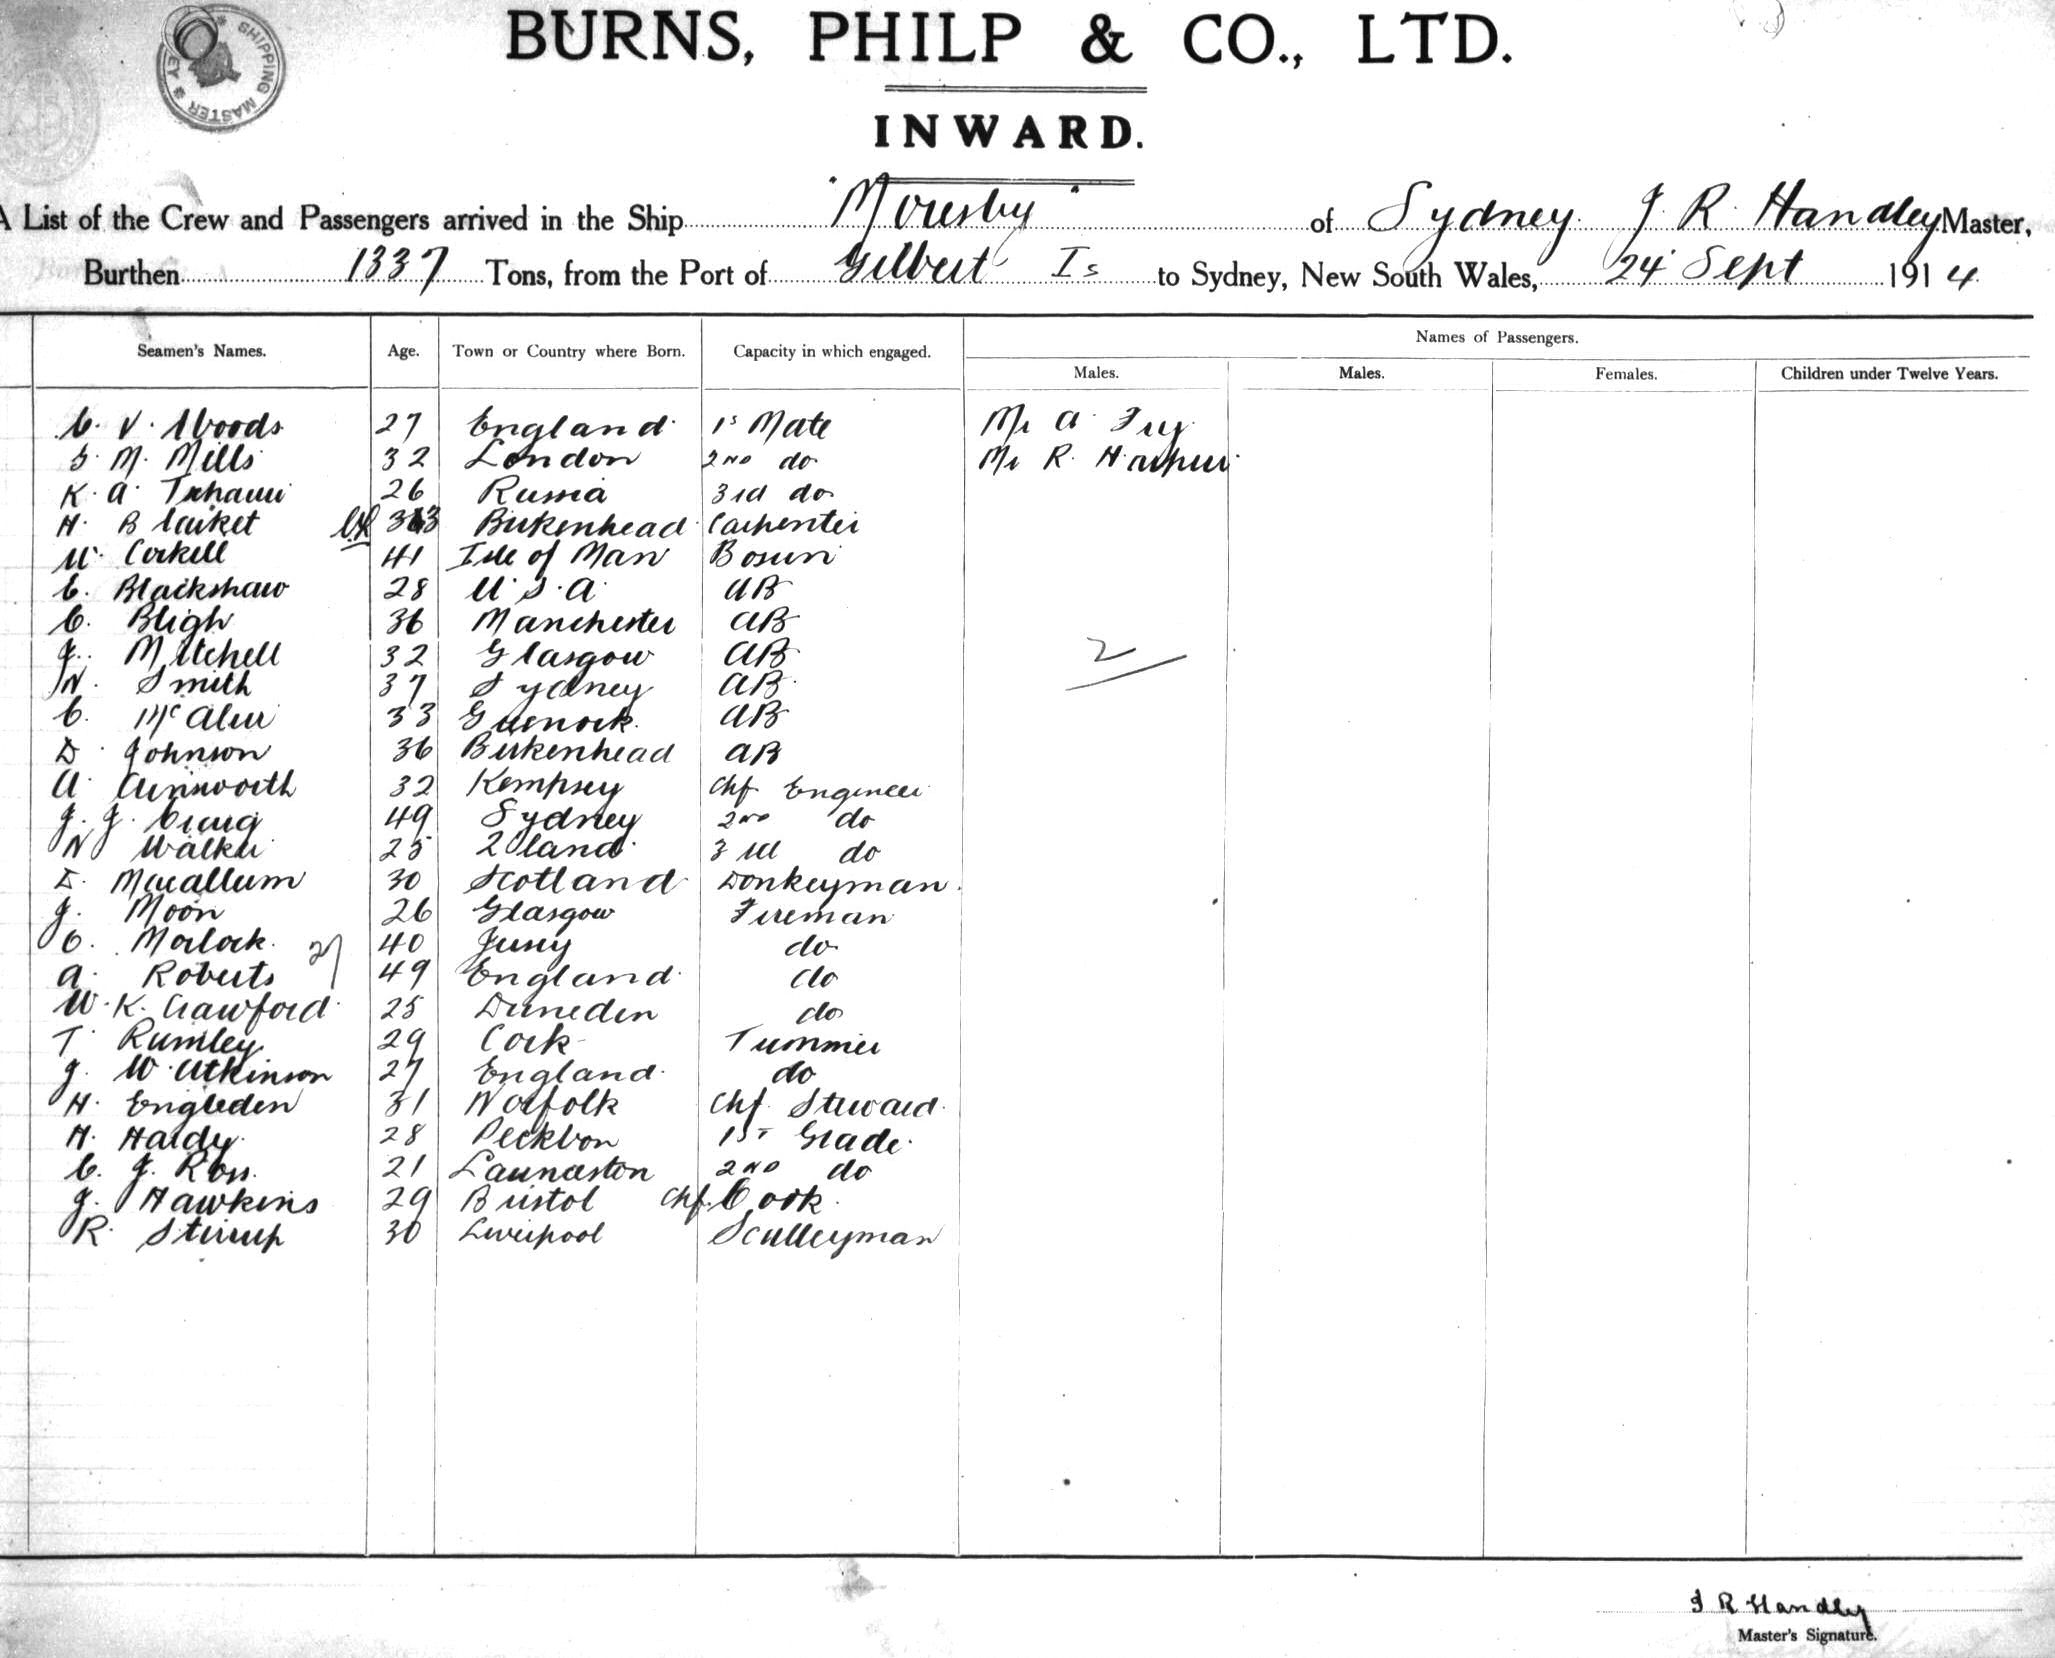 BURNS, PHILP & CO., LTD.
SHIPPING MASTER
INWARD.
A List of the Crew and Passengers arrived in the Ship "Moresby" of Sydney. J. R. Handley Master,
Burthen 1337 Tons, from the Port of Gilbert Is to Sydney, New South Wales, 24 Sept 1914.
Seamen's Names. Age. Town or Country where Born. Capacity in which engaged. Names of Passengers.
Males. Males. Females. Children under Twelve Years.
C. V. Woods 27 England 1st Mate Mr A. Fry
S. M. Mills 32 London 2nd do Mr R.
K. A. 26 Russia 3rd do
H. Blacket 33 Birkenhead Carpenter
W. Corkell 41 Isle of Man Bosun
E. Blackshaw 28 U.S.A. AB
C. Bligh 36 Manchester AB
J. Mitchell 32 Glasgow AB 2
N. Smith 37 Sydney AB
C. McAleer 33 Greenock AB
D. Johnson 36 Birkenhead AB
A. Ainsworth 32 Kempsey Chf Engineer
J. J. Craig 49 Sydney 2nd do
N Walker 25 Zland 3rd do
D. Macallum 30 Scotland Donkeyman.
J. Moon 26 Glasgow Fireman
C. Morlock 40 do
A. Roberts 49 England do
W. K. Crawford 25 Duneden do
T. Rumley 29 Cork Trimmer
J. W. Atkinson 27 England do
H. Engleden 31 Norfolk Chf Steward
H. Hardy 28 1st Grade
C. J. Ross 21 Launceston 2nd do
J. Hawkins 29 Bristol Chf. Cook
R. Stirrup 30 Liverpool Sculleyman
J R Handley
Master's Signature.